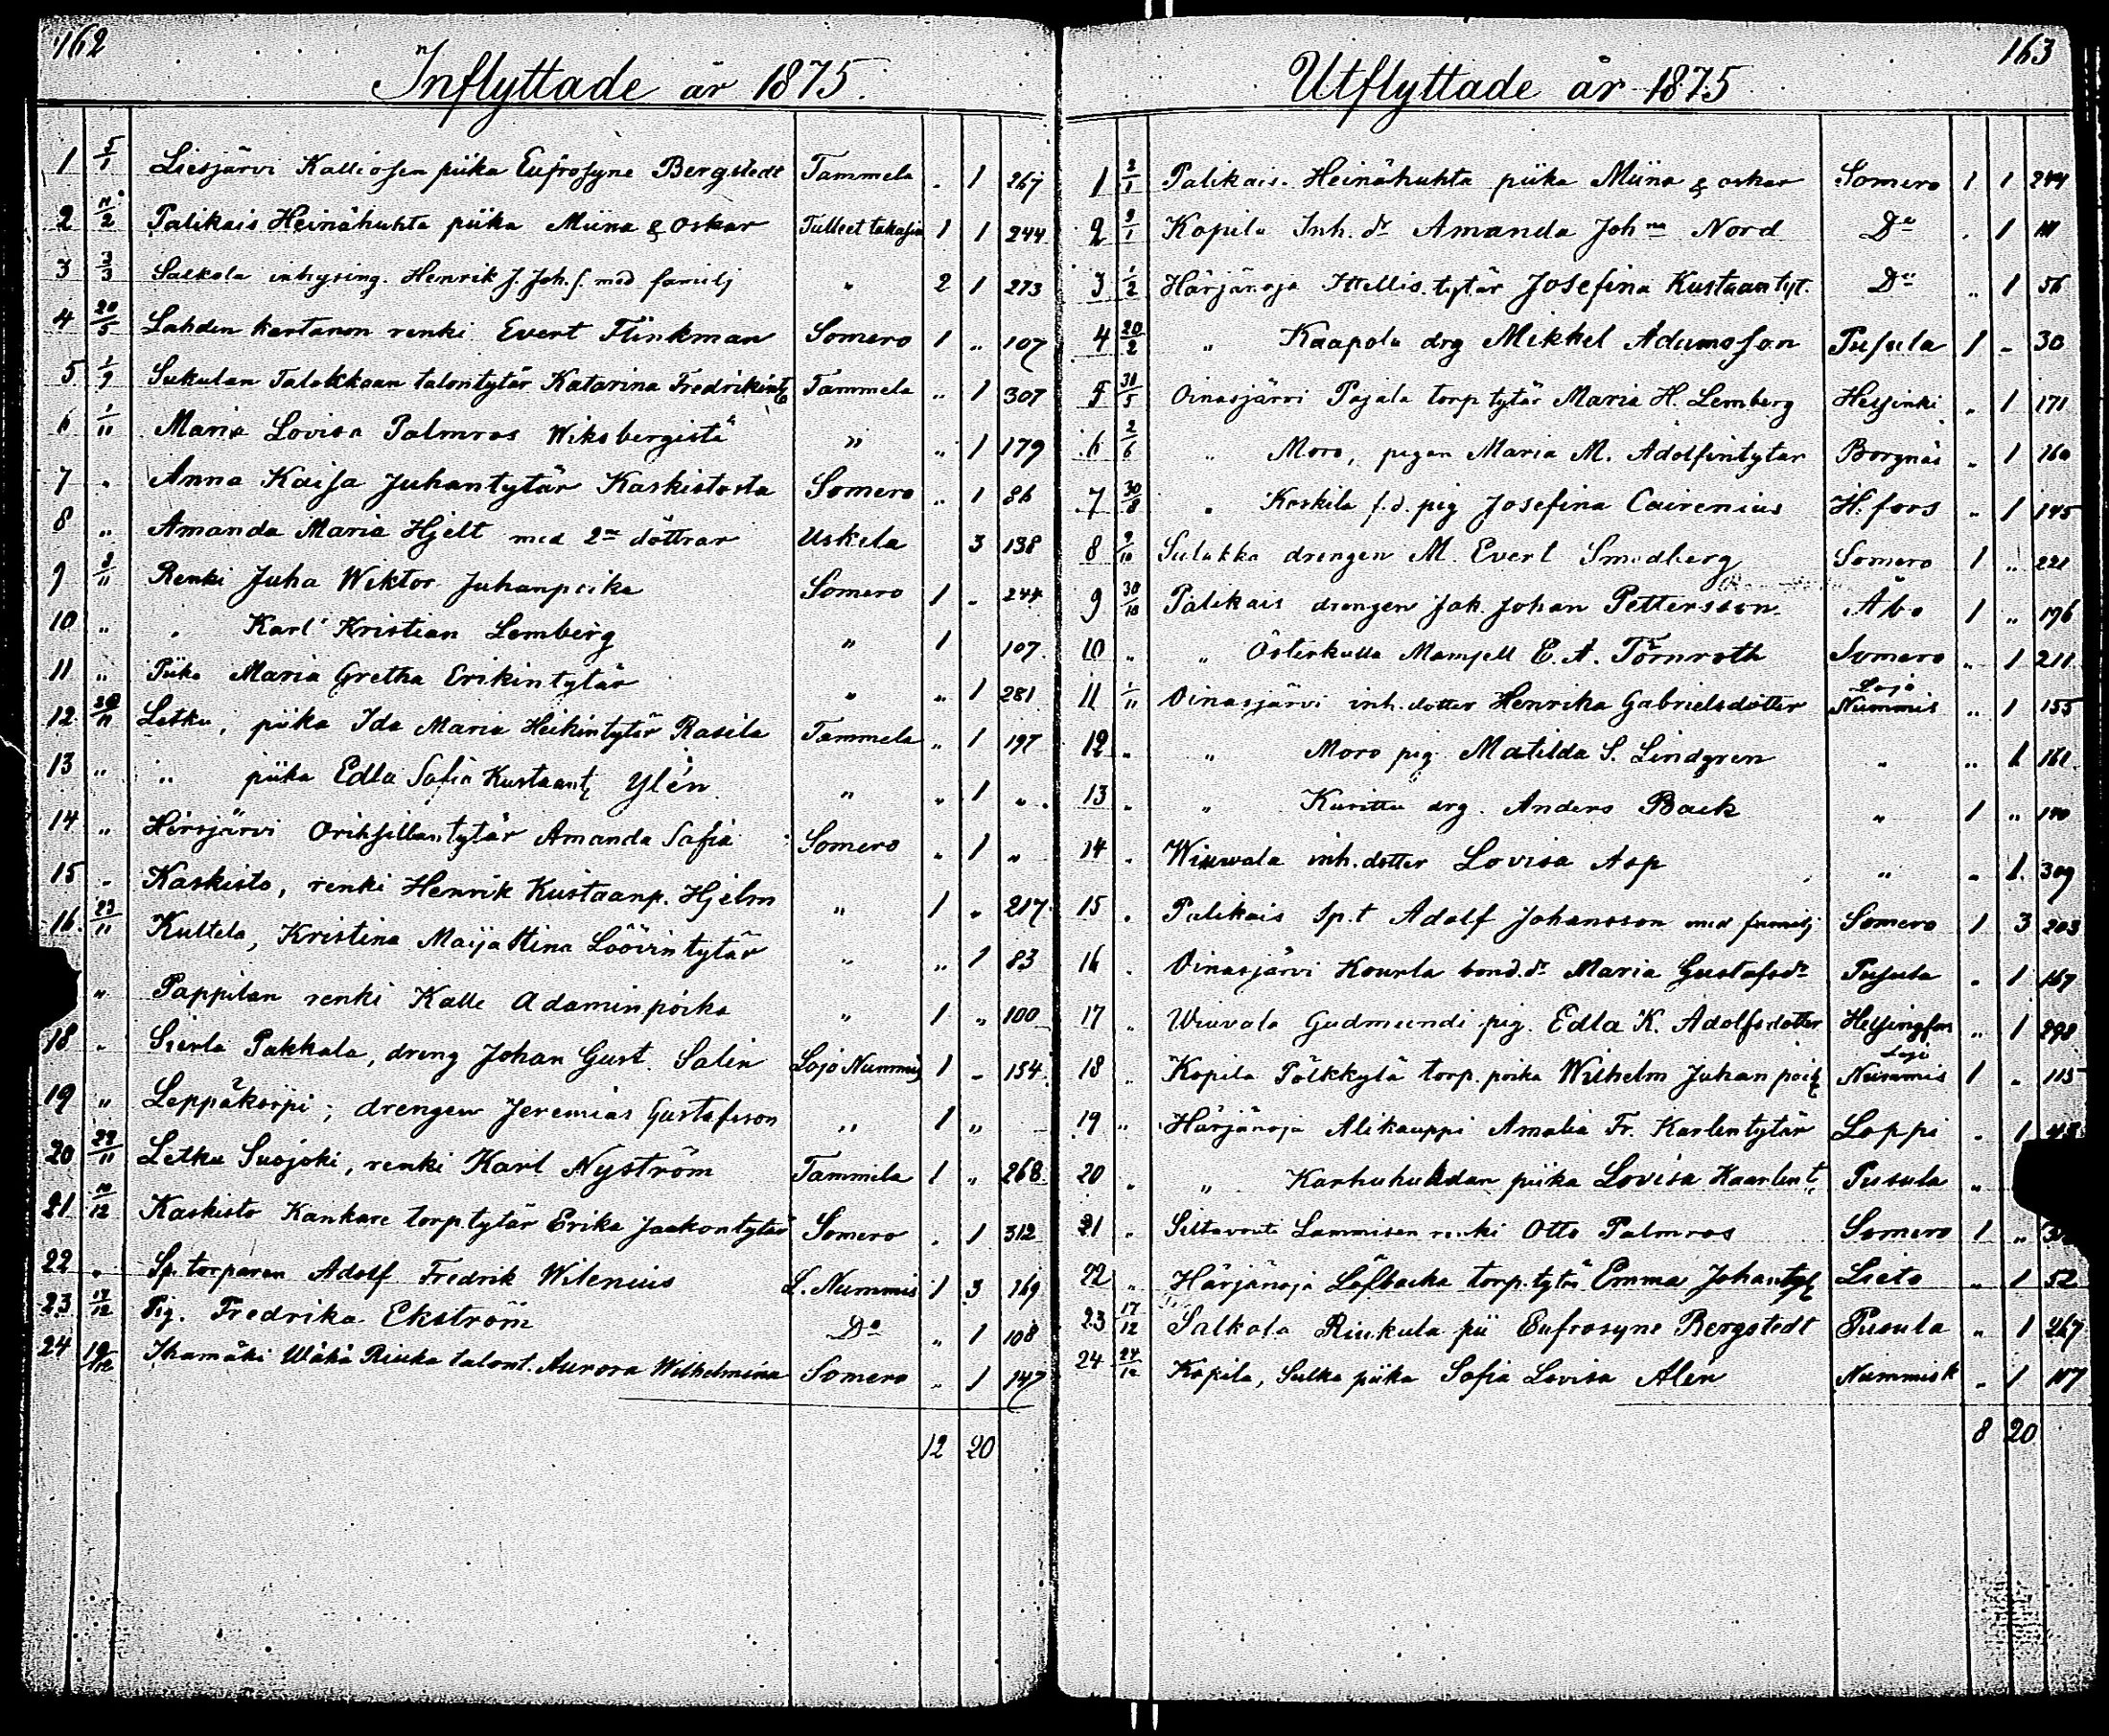 162
Inflyttade år 1875.
1 5/1 Liesjärvi Kalliosen piika Eufrosyne Bergstedt Tammela „ 1 267
2 11/2 Palikais Heinähuhta piika Miina & Oskar Tulleet takasin 1 1 244
3 3/3 Salkola inhysing. Henrik J. Joh. s. med familj „ 2 1 273
4 20/5 Lahden kartanon renki Evert Flinkman Somero 1 „ 107
5 1/9 Sukulan Talokkaan talontytär Katarina Fredrikint Tammela „ 1 307
6 1/11 Maria Lovisa Palmros Wiksbergistä „ „ 1 179
7 „ Anna Kaisa Juhantytär Kaskistosta Somero „ 1 86
8 „ Amanda Maria Hjelt med 2ne döttrar Uskela 3 138
9 8/11 Renki Juha Wiktor Juhanpoika Somero 1 „ 244
10 „ „ Karl Kristian Lemberg „ 1 107.
11 „ Piika Maria Gretha Erikintytär „ „ 1 281
12 20/11 Letku, piika Ida Maria Heikintytär Rasila Tammela „ 1 197
13 „ „ piika Edla Sofia Kustaant Ylén „ „ 1 „
14 „ Hirsjärvi Orihsillantytär Amanda Sofia Somero „ 1 „
15 „ Kaskisto, renki Henrik Kustaanp. Hjelm „ 1 „ 217
16. 23/11 Kultela, Kristina Maija Stina Löövintytär „ „ 1 83
„ Pappilan renki Kalle Adaminpoika „ 1 „ 100
18 „ Sierla Pakkala, dreng Johan Gust. Salin Lojo Nummis 1 „ 154
19 „ Leppäkorpi, drengen Jeremias Gustafsson „ 1 „
20 29/11 Letku Suojoki, renki Karl Nyström Tammela 1 „ 268
21 10/12 Kaskisto Kankare torptytär Erika Jaakontytär Somero „ 1 312
22 „ Sp. torparen Adolf Fredrik Wilenius L. Nummis 1 3 169
23 17/12 Pig. Fredrika Ekström Do „ 1 108
24 19/12 Ihamäki Wähä Riuka talont. Aurora Wilhelmina Somero „ 1 147
12 20
163
Utflyttade år 1875
1 2/1 Palikais. Heinähuhta piika Miina & oskar Somero 1 1 244
2 9/1 Kopila Inh. dr Amanda Johna Nord Do „ 1
3 1/2 Härjänoja Ittellis. tytär Josefina Kustaantyt. Do „ 1 56
4 20/2 „ Kaapola drg Mikkel Adamsson Pusula 1 „ 30
5 31/5 Oinasjärvi Pajala torp tytär Maria H. Lemberg Helsinki „ 1 171
6 2/6 „ Moro, pigan Maria M. Adolfintytär Borgnäs „ 1 160
7 30/8 „ Koskila f.d. pig Josefina Cairenius H.fors „ 1 145
8 9/10 Sulakka drengen M. Evert Smedberg Somero 1 „ 221
9 30/10 Palikais drengen Jak. Johan Pettersson Åbo 1 „ 196
10 „ „ Österkulla Mamsell E. A. Törnroth Somero „ 1 211
11 1/11 Oinasjärvi inh. dotter Henrika Gabrielsdotter Lojo Nummis „ 1 155
12 „ „ Moro pig Matilda S. Lindgren „ „ 1 161
13 „ „ Kurittu drg. Anders Back „ 1 „ 140
14 „ Wiuvala inh. dotter Lovisa Asp „ „ 1. 309
15 „ Palikais Sp.t Adolf Johansson med familj Somero 1 3 203
16 „ Oinasjärvi Kourla bond. dr Maria Gustafsdr Pusula „ 1 167
17 „ Wiuvala Gudmundi pig. Edla K. Adolfsdotter Helsingfors „ 1 298
18 „ Kopila Pölkkylä torp. poika Wilhelm Juhan poik Lojo Nummis 1 „ 115
19 „ Härjänoja Alikauppi Amalia Fr. Karlentytär Loppi „ 1
20 „ „ Karhuhuhdan piika Lovisa Kaarlent. Pusula „
21 „ Siltavouti Lammisen renki Otto Palmros Somero 1 „
22 „ Härjänoja Löfbacka torp. tytär Emma Johantyt Lieto „ 1 52
23 17/12 Salkola Riukula pii Eufrosyne Bergstedt Pusula „ 1 267
24 24/12 Kopila, Sulka piika Sofia Lovisa Alén Nummisk „ 1 117
8 20